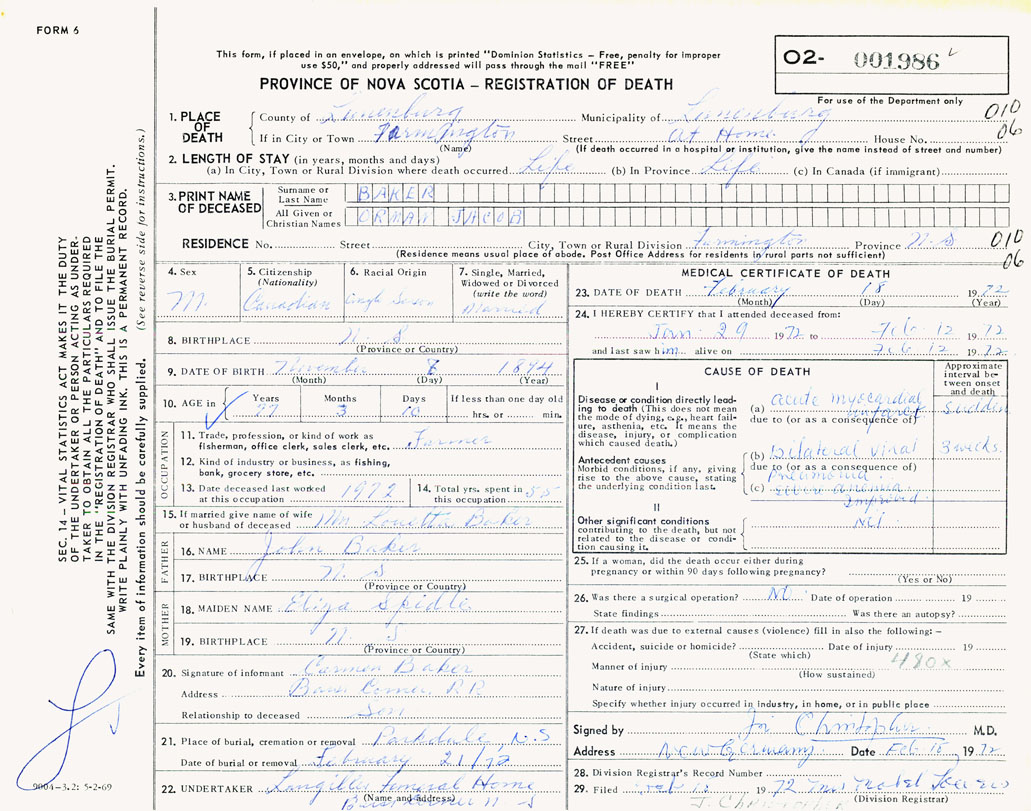 FORM 6
This form, if placed in an envelope, on which is printed "Dominion Statistics – Free, penalty for improper
use $50," and properly addressed will pass through the mail "FREE"
PROVINCE OF NOVA SCOTIA – REGISTRATION OF DEATH
O2- 001986
For use of the Department only
010
06
1. PLACE OF DEATH
County of Lunenburg Municipality of Lunenburg
If in City or Town Farmington Street At Home House No.
(Name) (If death occurred in a hospital or institution, give the name instead of street and number)
2. LENGTH OF STAY (in years, months and days)
(a) In City, Town or Rural Division where death occurred Life (b) In Province Life (c) In Canada (if immigrant)
3. PRINT NAME OF DECEASED
Surname or Last Name BAKER
All Given or Christian Names ORMAN JACOB
RESIDENCE No. Street City, Town or Rural Division Farmington Province N.S
(Residence means usual place of abode. Post Office Address for residents in rural parts not sufficient)
010
06
4. Sex M.
5. Citizenship (Nationality) Canadian
6. Racial Origin
7. Single, Married, Widowed or Divorced (write the word) Married
8. BIRTHPLACE N. S
(Province or Country)
9. DATE OF BIRTH November 8 1894
(Month) (Day) (Year)
10. AGE in Years 77 Months 3 Days 10 If less than one day old hrs. or min.
OCCUPATION
11. Trade, profession, or kind of work as fisherman, office clerk, sales clerk, etc. Farmer
12. Kind of industry or business, as fishing, bank, grocery store, etc.
13. Date deceased last worked at this occupation 1972
14. Total yrs. spent in this occupation 55
15. If married give name of wife or husband of deceased Mrs Louetta Baker
FATHER
16. NAME John Baker
17. BIRTHPLACE N. S
(Province or Country)
MOTHER
18. MAIDEN NAME Eliza Spidle
19. BIRTHPLACE N. S
(Province or Country)
20. Signature of informant Carmen Baker
Address Barss Corner, RR
Relationship to deceased Son
21. Place of burial, cremation or removal Parkdale, N.S
Date of burial or removal February 21/72
22. UNDERTAKER Langille Funeral Home
(Name and address) N.S
MEDICAL CERTIFICATE OF DEATH
23. DATE OF DEATH February 18 1972
(Month) (Day) (Year)
24. I HEREBY CERTIFY that I attended deceased from:
Jan. 29 1972 to Feb 12 1972
and last saw him alive on Feb 12 1972
CAUSE OF DEATH
Approximate interval between onset and death
I
Disease or condition directly leading to death (This does not mean the mode of dying, e.g., heart failure, asthenia, etc. It means the disease, injury, or complication which caused death.)
(a) acute myocardial infarct sudden
due to (or as a consequence of)
Antecedent causes
Morbid conditions, if any, giving rise to the above cause, stating the underlying condition last.
(b) bilateral viral 3 weeks
due to (or as a consequence of)
pneumonia
(c) severe anemia
improved
II
Other significant conditions contributing to the death, but not related to the disease or condition causing it.
Nil
25. If a woman, did the death occur either during pregnancy or within 90 days following pregnancy?
(Yes or No)
26. Was there a surgical operation? NO Date of operation 19
State findings Was there an autopsy?
27. If death was due to external causes (violence) fill in also the following: –
Accident, suicide or homicide? Date of injury 19
(State which)
480x
Manner of injury
(How sustained)
Nature of injury
Specify whether injury occurred in industry, in home, or in public place
Signed by Christopher M.D.
Address New Germany Date Feb 18 1972
28. Division Registrar's Record Number
29. Filed Feb 18 1972
(Division Registrar)
SEC. 14 – VITAL STATISTICS ACT MAKES IT THE DUTY
OF THE UNDERTAKER OR PERSON ACTING AS UNDERTAKER
TO OBTAIN ALL THE PARTICULARS REQUIRED
IN THE "REGISTRATION OF DEATH" AND TO FILE THE
SAME WITH THE DIVISION REGISTRAR WHO SHALL ISSUE THE BURIAL PERMIT.
WRITE PLAINLY WITH UNFADING INK. THIS IS A PERMANENT RECORD.
Every item of information should be carefully supplied. (See reverse side for instructions.)
9004-3.2: 5-2-69